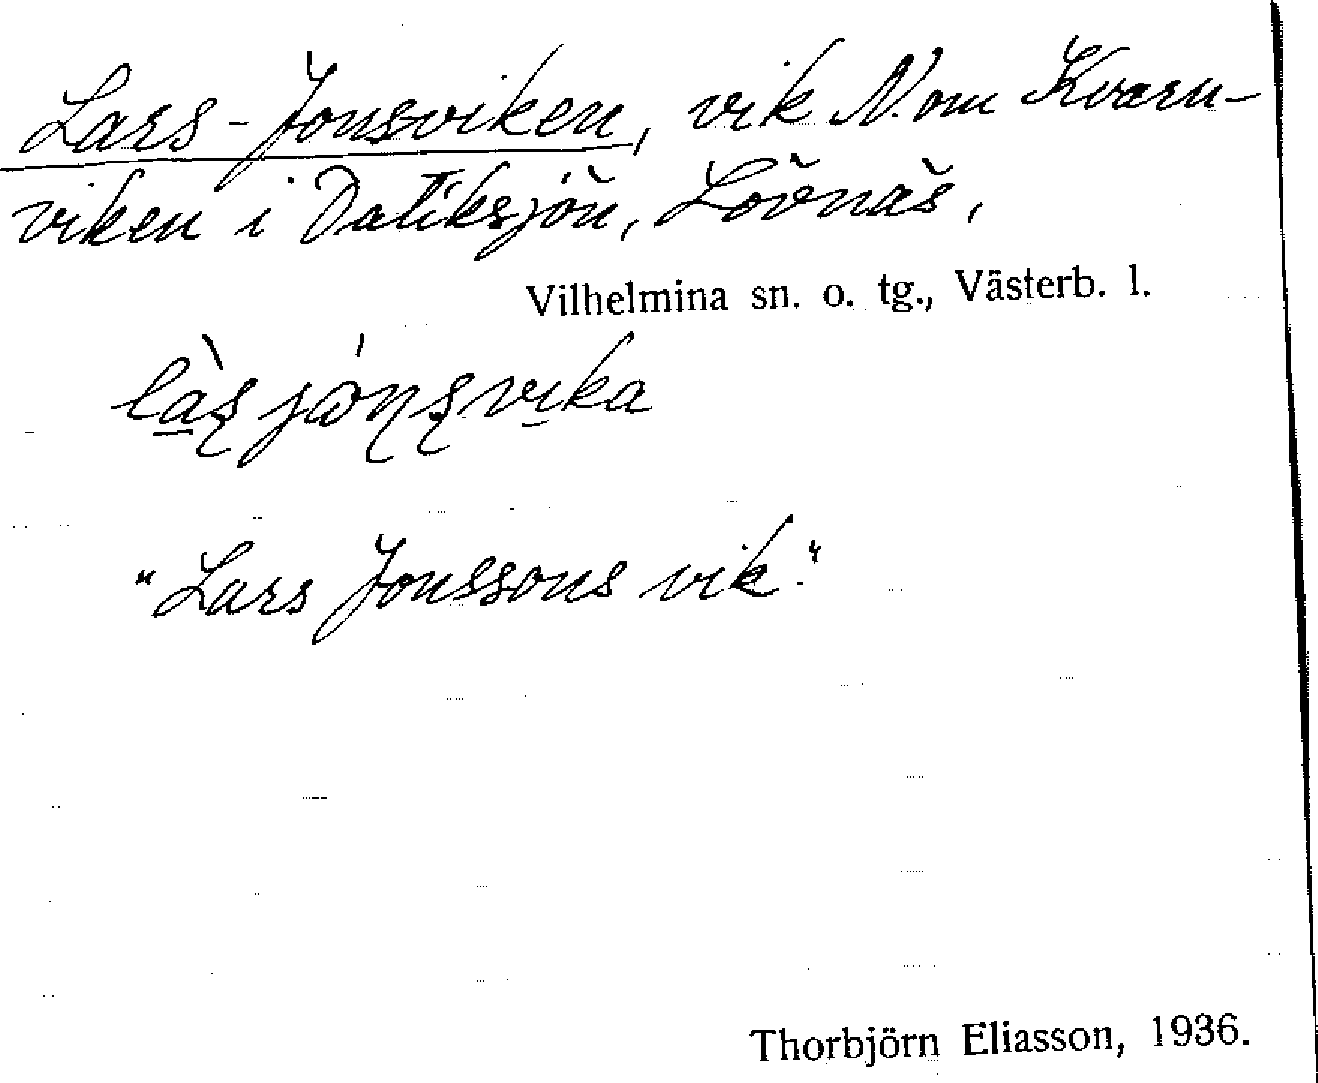 Lars-Jonsviken, vik N. om Kvarn-
viken i Datiksjön, Lövnäs,
Vilhelmina sn. o. tg., Västerb. l.
"Lars Jonssons vik."
Thorbjörn Eliasson, 1936.